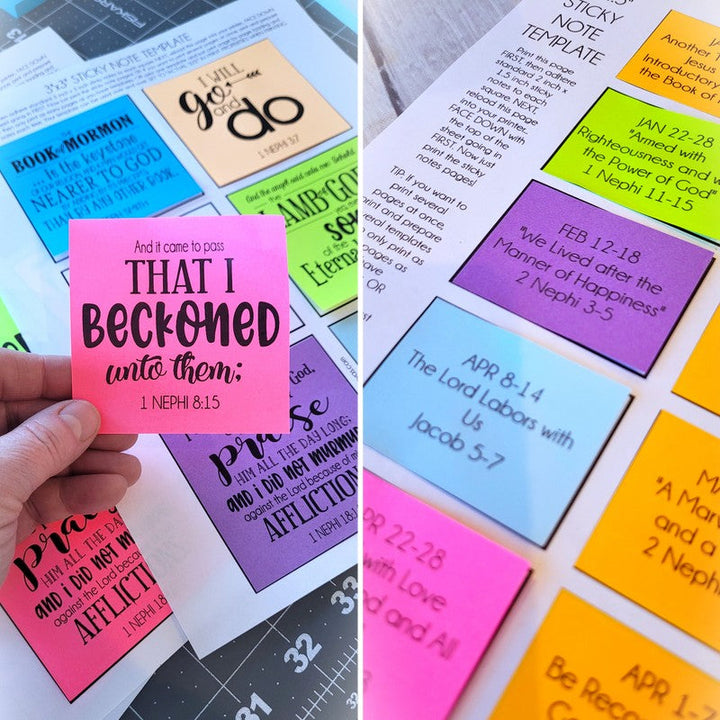 FISKARS
3"x3" STICKY NOTE TEMPLATE
FACE DOWN
I WILL
go
and
do
1 NEPHI 3:7
THE
BOOK of MORMON
is the keystone
NEARER TO GOD
THAN ANY OTHER BOOK.
And the angel said unto me: Behold
LAMB of GOD
of the
Eternal
And it came to pass
THAT I
BECKONED
unto them;
1 NEPHI 8:15
God,
praise
HIM ALL THE DAY LONG;
and i did not murmur
against the Lord because of mi
AFFLICTION
1 NEPHI 18:1
praise
HIM ALL THE DAY
and i did not mu
against the Lord because
AFFLICTI
1 NEPHI 18
33
32
31
STICKY
NOTE
TEMPLATE
Print this page
FIRST, then adhere
standard 2 inch x
1.5 inch sticky
notes to each
square. NEXT,
reload this page
into your printer,
FACE DOWN with
the top of the
sheet going in
FIRST. Now just
print the sticky
notes pages!
TIP: If you want to
print several
pages at once,
print and prepare
several templates
only print as
pages as
have
OR
JA
Another T
Jesus
Introductory
the Book of
JAN 22-28
"Armed with
Righteousness and w
the Power of God"
1 Nephi 11-15
FEB 12-18
"We Lived after the
Manner of Happiness"
2 Nephi 3-5
APR 8-14
The Lord Labors with
Us
Jacob 5-7
MA
"A Mar
and a
2 Neph
PR 22-28
with Love
d and All
3
APR 1-7
Be Reco